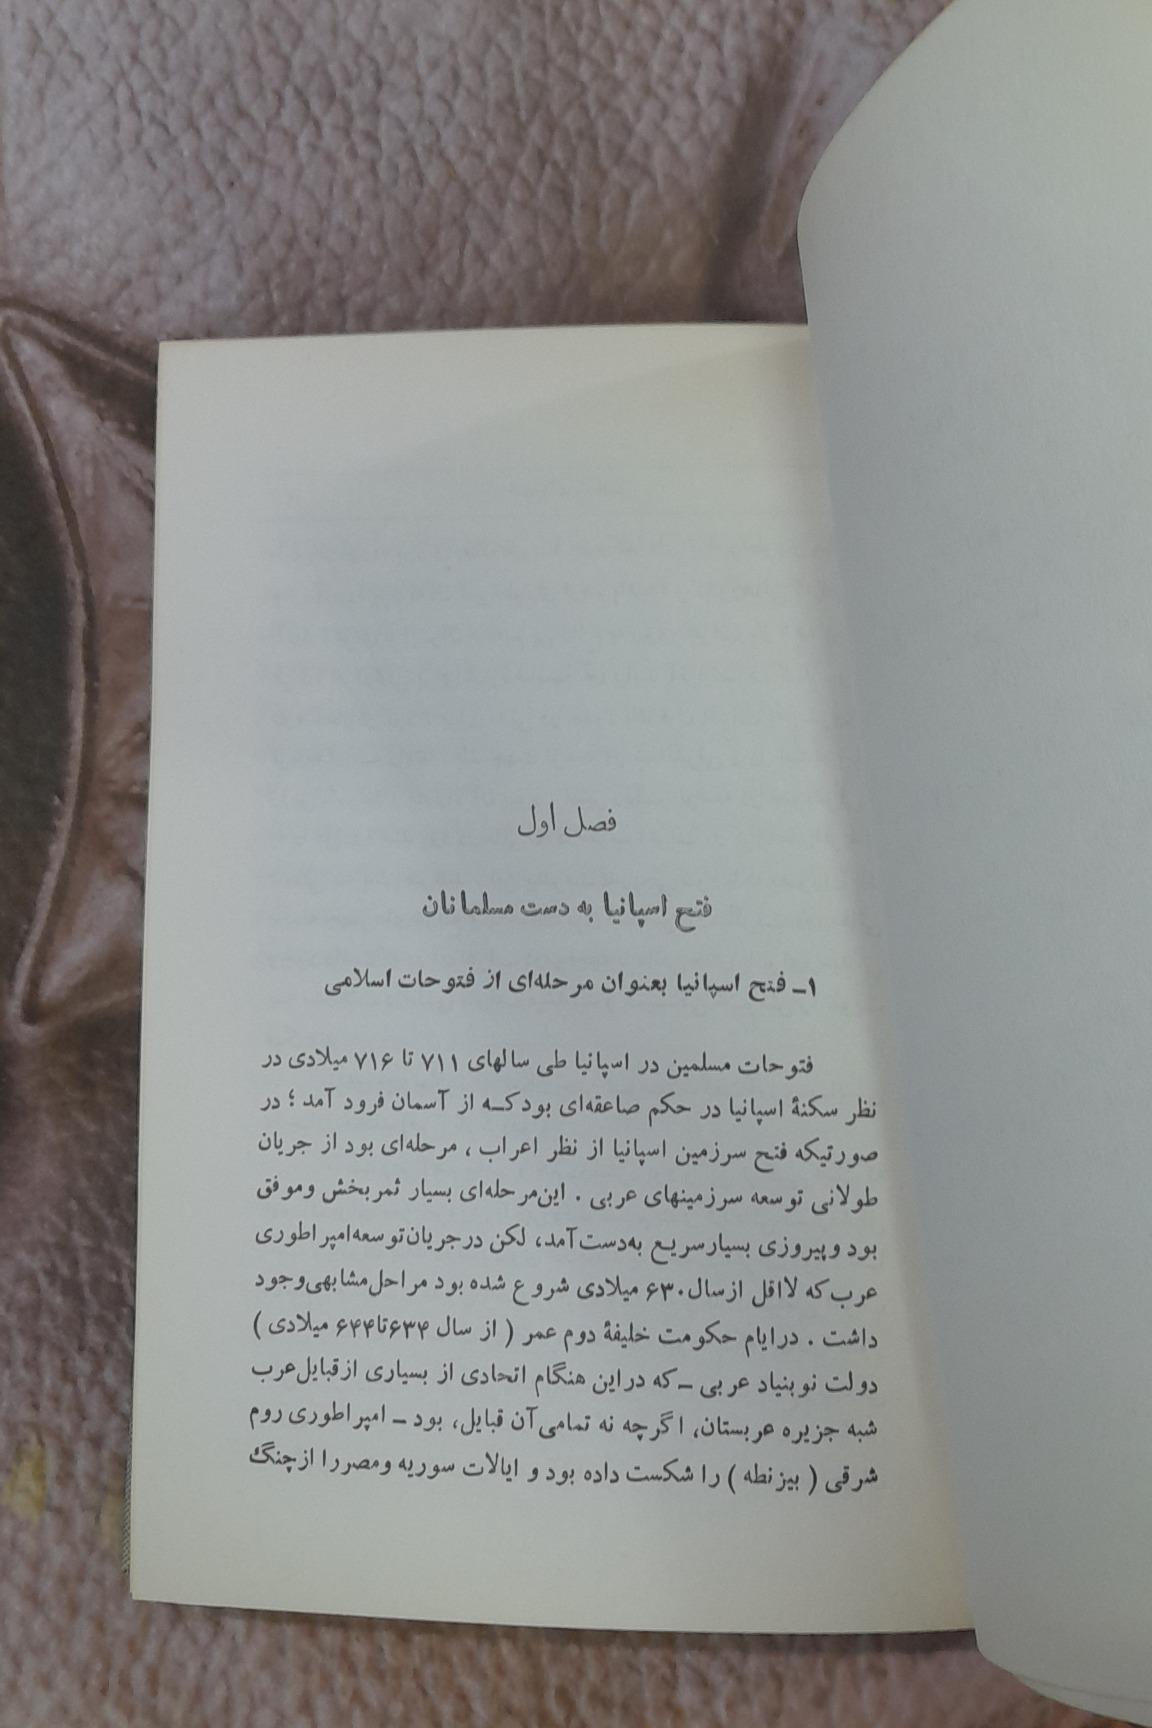 فصل اول
فتح اسپانیا به دست مسلمانان
۱ـ فتح اسپانیا بعنوان مرحله‌ای از فتوحات اسلامی
فتوحات مسلمین در اسپانیا طی سالهای ۷۱۱ تا ۷۱۶ میلادی در
نظر سکنهٔ اسپانیا در حکم صاعقه‌ای بود کــه از آسمان فرود آمد ؛ در
صورتیکه فتح سرزمین اسپانیا از نظر اعراب ، مرحله‌ای بود از جریان
طولانی توسعه سرزمینهای عربی . این‌مرحله‌ای بسیار ثمربخش وموفق
بود وپیروزی بسیارسریع به‌دست‌آمد، لکن درجریان‌توسعه‌امپراطوری
عرب‌که لااقل ازسال۶۳۰ میلادی شروع شده بود مراحل‌مشابهی‌وجود
داشت . درایام حکومت خلیفهٔ دوم عمر ( از سال ۶۳۴تا۶۴۴ میلادی )
دولت نوبنیاد عربی ــ که دراین هنگام اتحادی از بسیاری ازقبایل‌عرب
شبه جزیره عربستان، اگرچه نه تمامی‌آن قبایل، بود ــ امپراطوری روم
شرقی ( بیزنطه ) را شکست داده بود و ایالات سوریه ومصررا ازچنگ